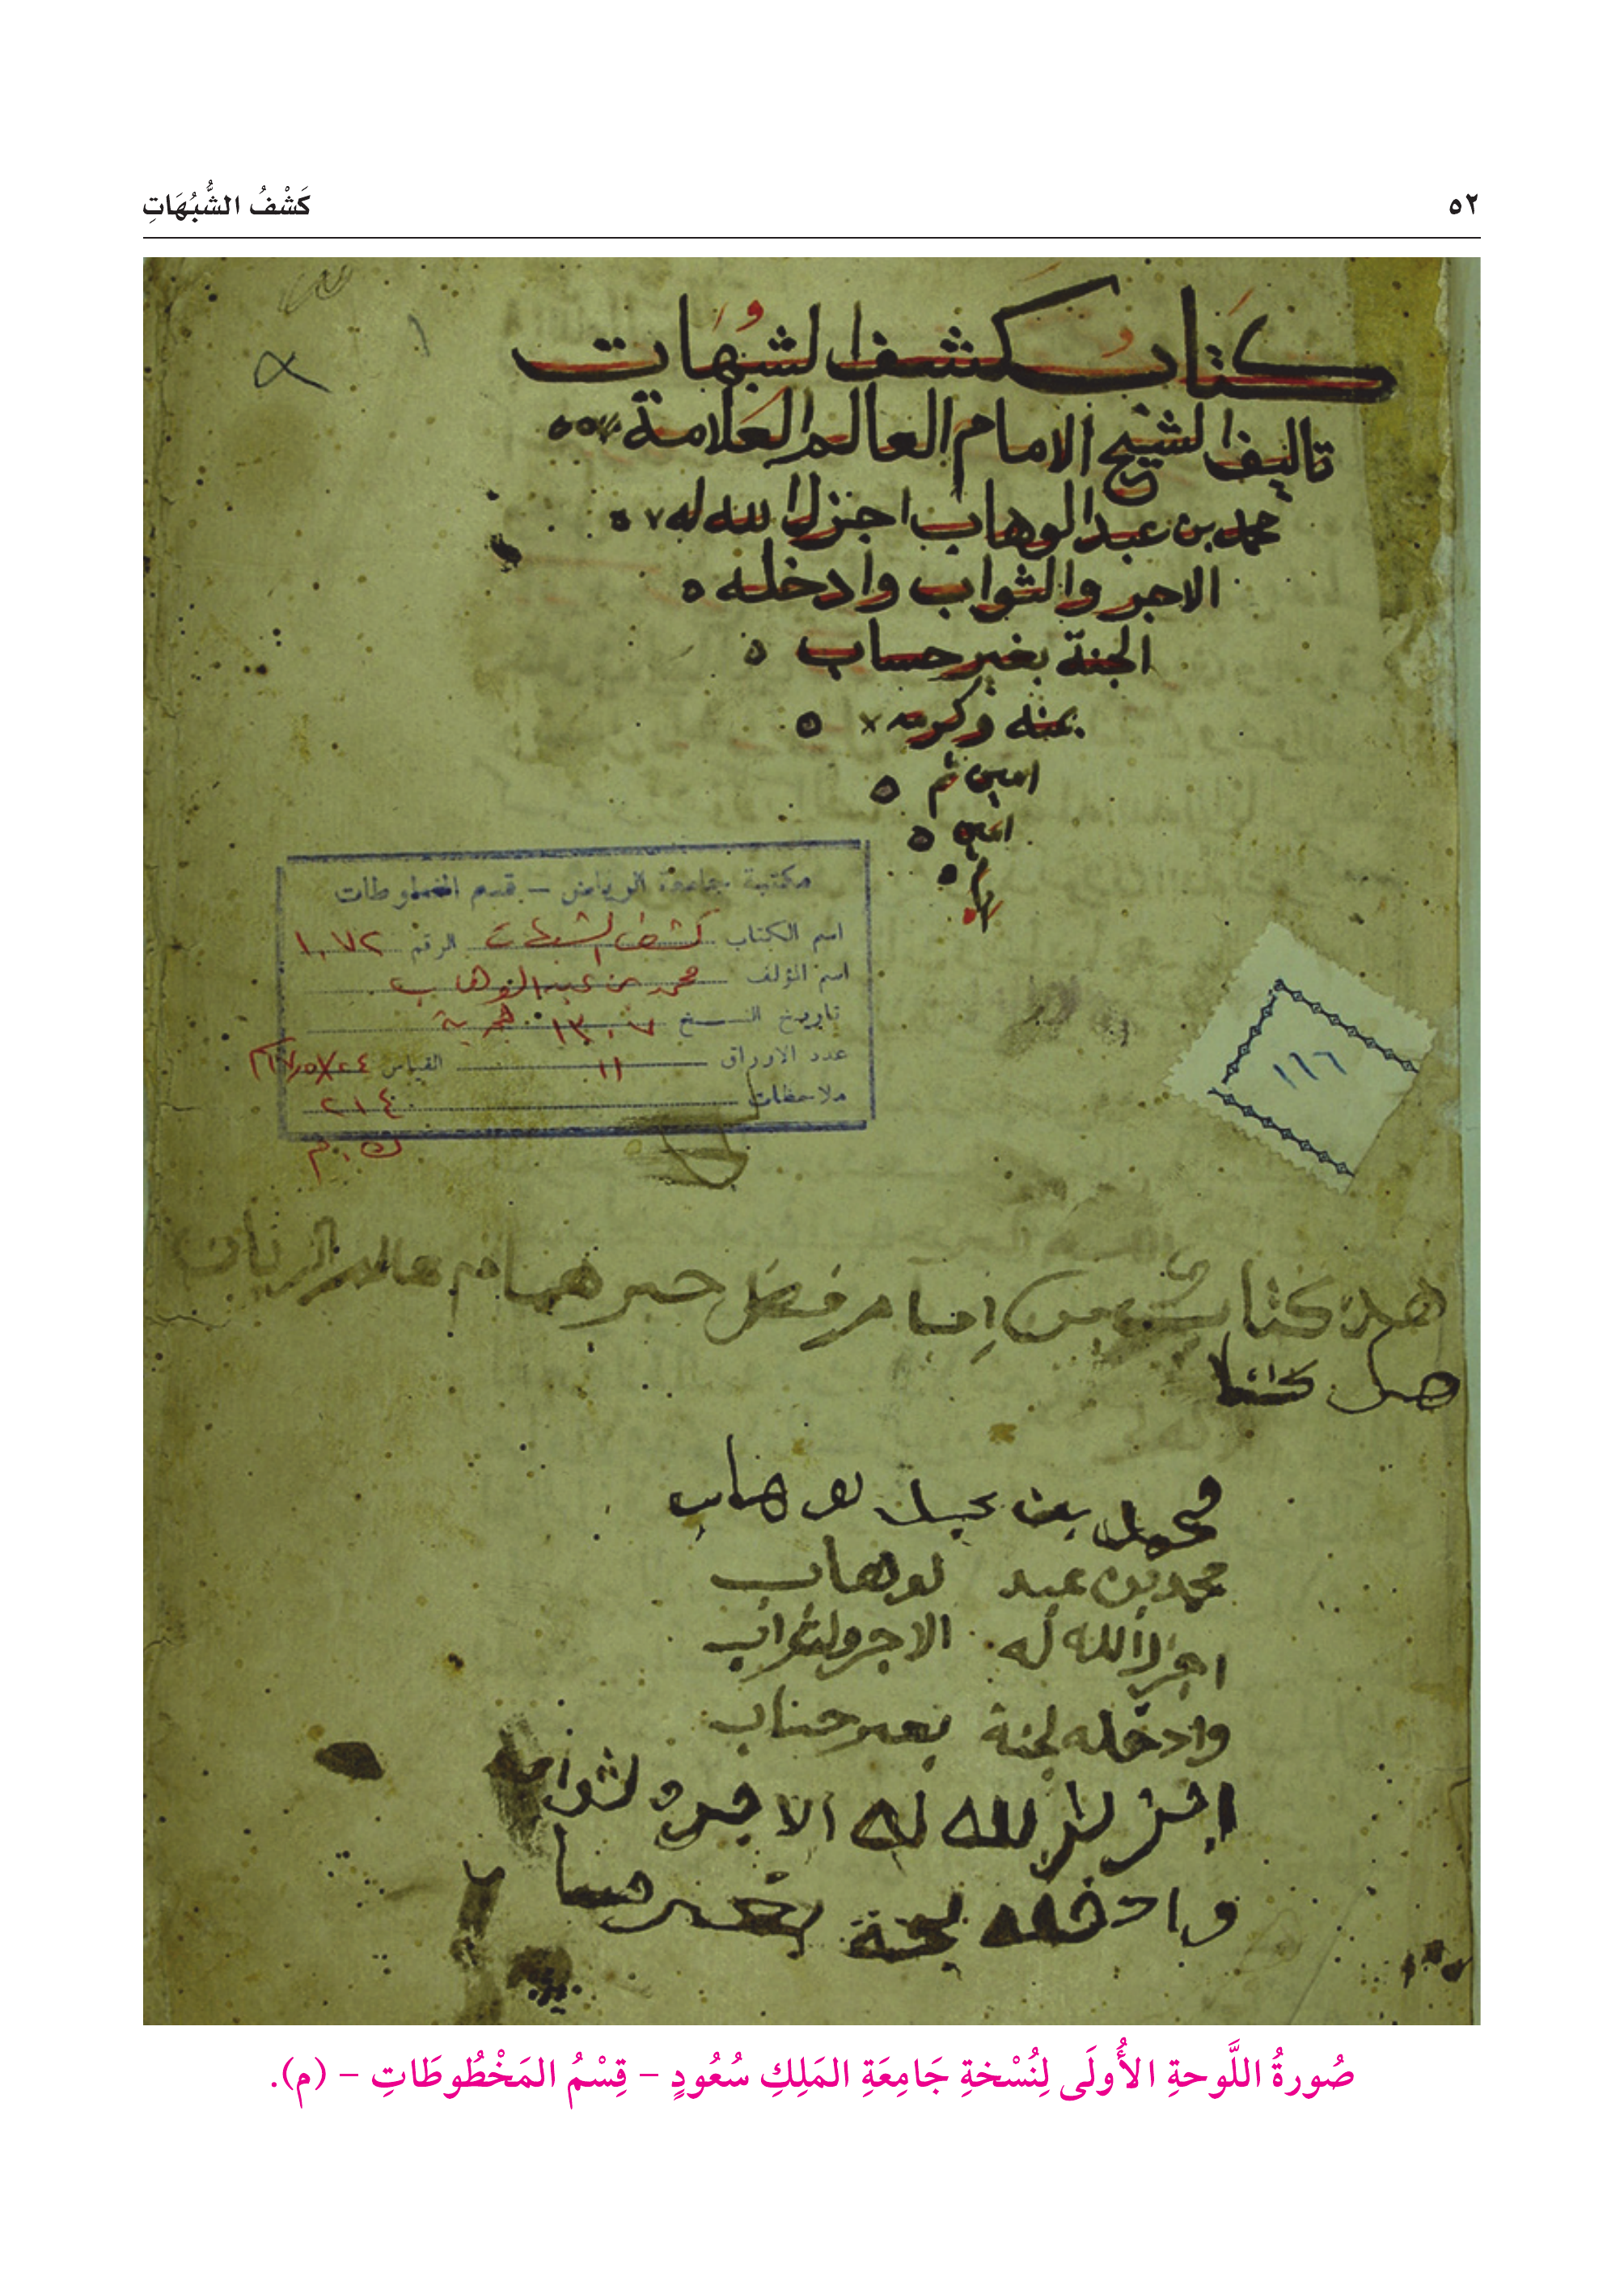 ٥٢
كَشْفُ الشُّبُهَاتِ
كتاب كشف الشبهات
تاليف الشيخ الامام العالم العلامة
محمد بن عبد الوهاب اجزل الله له
الاجر والثواب وادخله
الجنة بغير حساب
بمنه وكرمه
امين ثم
امين
مكتبة جامعة الرياض – قسم المخطوطات
اسم الكتاب كشف الشبهات الرقم ١٠٧٢
اسم المؤلف محمد بن عبد الوهاب
تاريخ النسخ ١٣٠٧ هجرية
عدد الاوراق ١١ القياس
ملاحظات ٢١٤
١١٦٦
هذا كتاب من امام فضل حبر همام عالم
محمد بن عبد لوهاب
محمد بن عبد لوهاب
اجزل الله له الاجر ولثواب
وادخله لجنة بغير حساب
اجزل الله له الاجر ولثواب
وادخله لجنة بغير حسا
صُورةُ اللَّوحةِ الأُولَى لِنُسْخةِ جَامِعَةِ المَلِكِ سُعُودٍ – قِسْمُ المَخْطُوطَاتِ – (م).